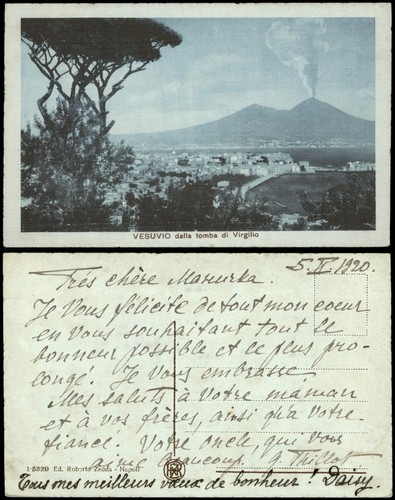 VESUVIO dalla tomba di Virgilio
5. IV. 1920.
Très chère Masurka.
Je Vous félicite de tout mon coeur
en vous souhaitant tout le
bonneur possible et le plus pro-
longé. Je vous embrasse
Mes saluts à Votre maman
et à vos frères, ainsi qu'à votre
fiancé. Votre oncle, qui vous
aime beaucoup
1-5329 Ed. Roberto Zedda - Napoli
Tous mes meilleurs vœux de bonheur! Daisy.